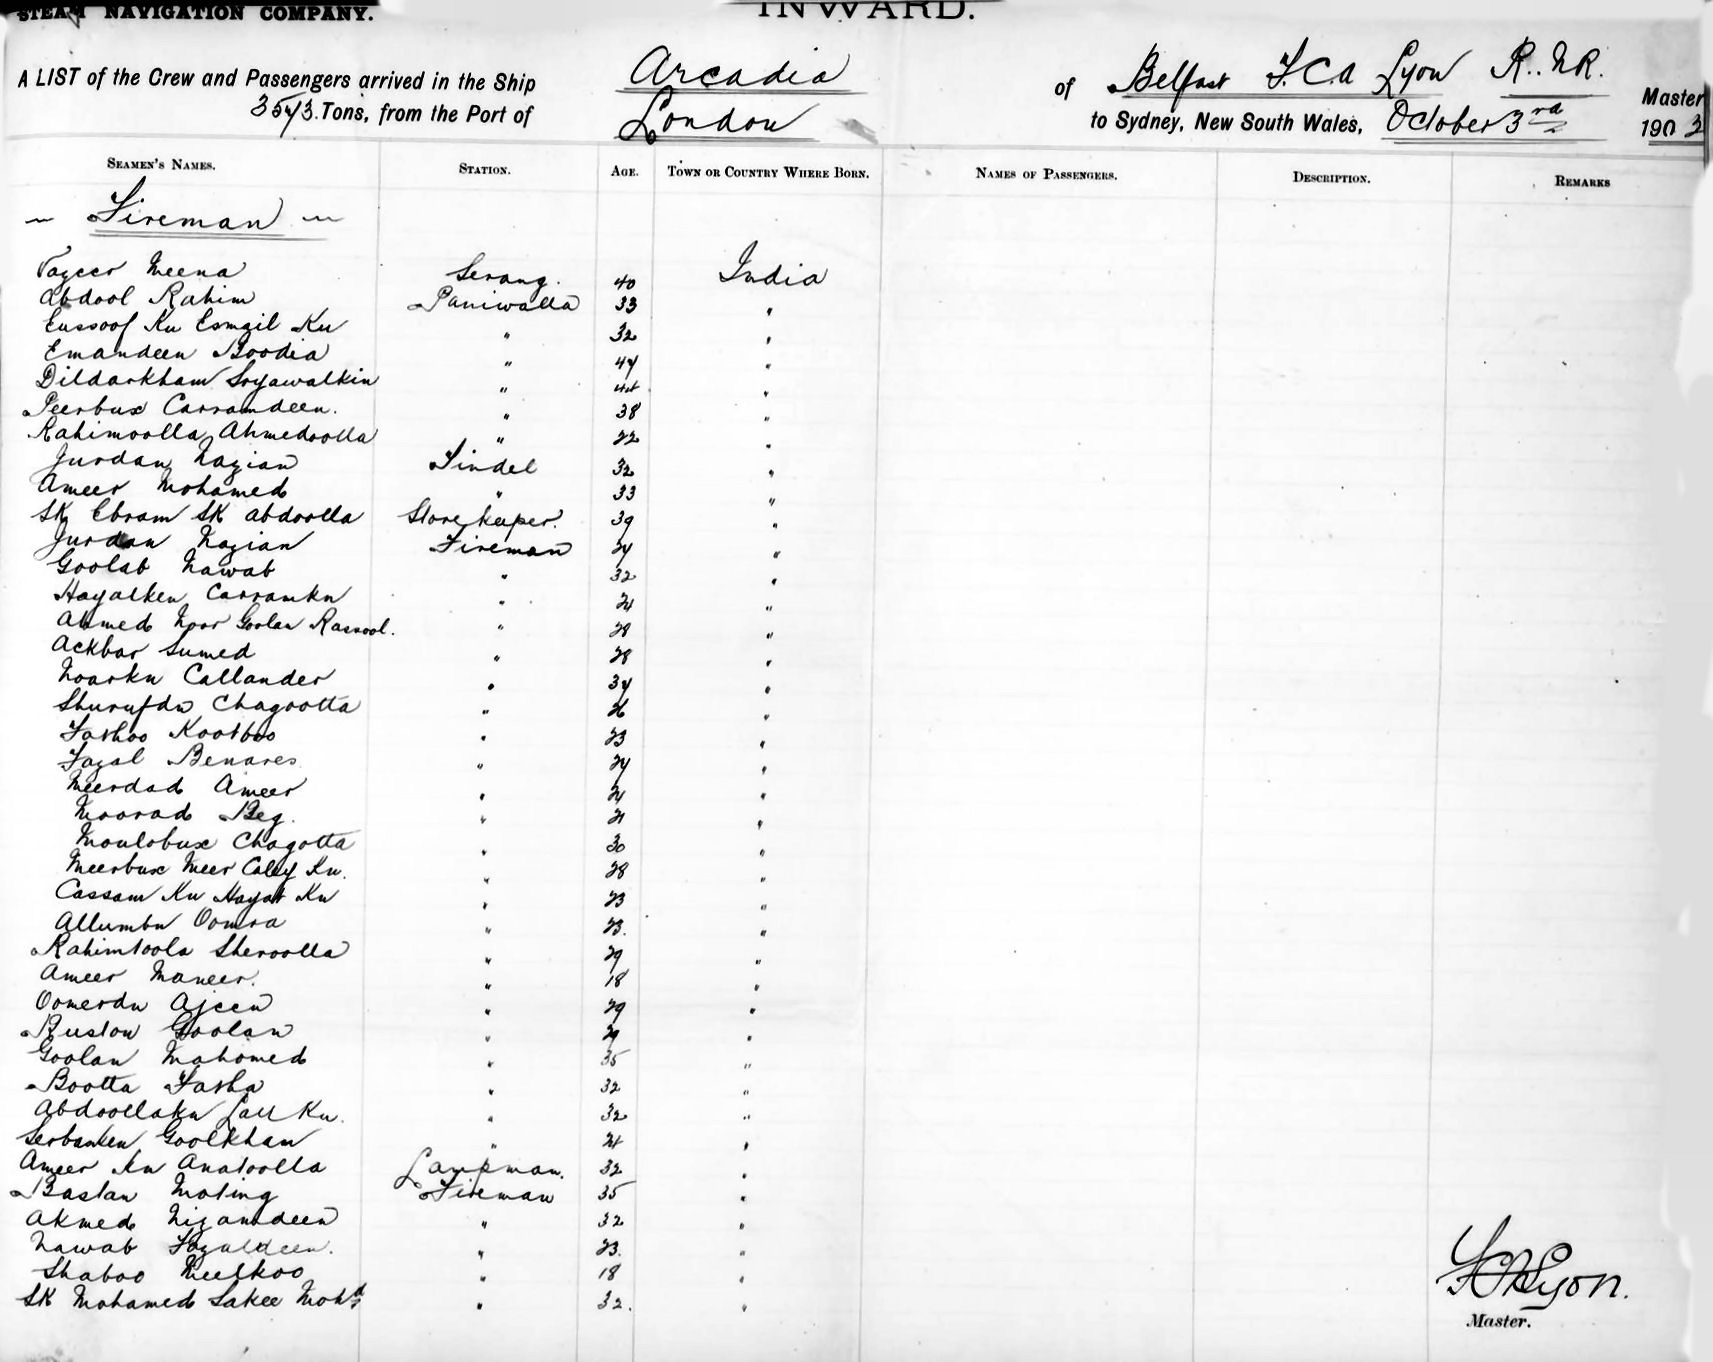 STEAM NAVIGATION COMPANY.
INWARD.
A LIST of the Crew and Passengers arrived in the Ship Arcadia of Belfast F.C.A Lyon R.N.R. Master
3543 Tons, from the Port of London to Sydney, New South Wales, October 3rd 1903
SEAMEN'S NAMES. STATION. AGE. TOWN OR COUNTRY WHERE BORN. NAMES OF PASSENGERS. DESCRIPTION. REMARKS
~ Fireman ~
Vazeer Meena Serang. 40 India
Abdool Rahim Paniwalla 33 "
Eussoof Ku Esmail Ku " 32 "
Emandeen Boodia " 44 "
Dildarkham " 44 "
Peerbux Carramdeen. " 38 "
Rahimoolla Ahmedoolla " 22 "
Jurdan Nazian Tindel 32 "
Ameer Mohamed " 33 "
SK Ebram SK Abdoolla Storekeeper. 39 "
Jurdan Nazian Fireman 24 "
Goolab Nawab " 32 "
Hayatken Carramkn " "
Ahmed Noor Goolan Rassool. " 28 "
Ackbar Sumed " 28 "
Noorkn Callander " 34 "
Shurufdn Chagootta " 26 "
Fashoo Kootboo " 23 "
Fazal Benares " 24 "
Meerdad Ameer " "
Moorad Beg. " 21 "
Moulobux Chagotta " 30 "
Meerbux Meer Ku. " 28 "
Cassam Ku Hayat Ku " 23 "
Allumbn Oomra " 23. "
Rahimtoola Sheroolla " 29 "
Ameer Maneer. " 18 "
Oomerdn Ajeen " 29 "
Ruston Goolan " 29 "
Goolan Mahomed " 35 "
Bootta Fasha " 32 "
Abdoollakn Lall Ku. " 32 "
Goolkhan " "
Ameer Ku Anatoolla Lampman. 32 "
Bastan Moting Fireman 35 "
Akmed Nizamdeen " 32 "
Nawab Fazaldeen. " 23. "
Shaboo Meelkoo " 18 "
SK Mohamed Sakee Mohd " 32. "
FCALyon.
Master.